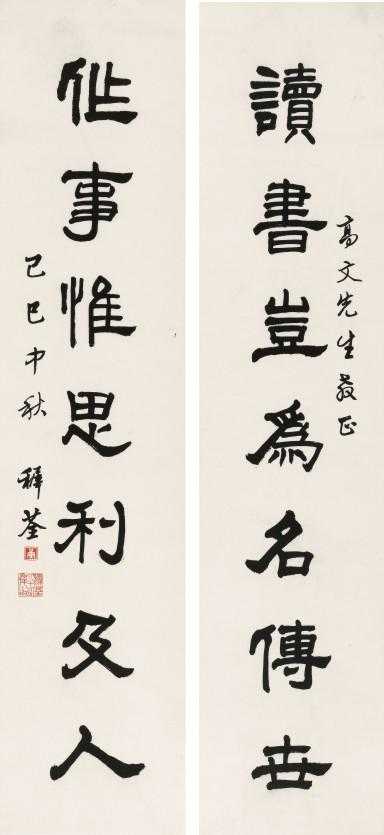 高文先生教正
讀書豈爲名傳世
作事惟思利及人
己巳中秋 稺荃